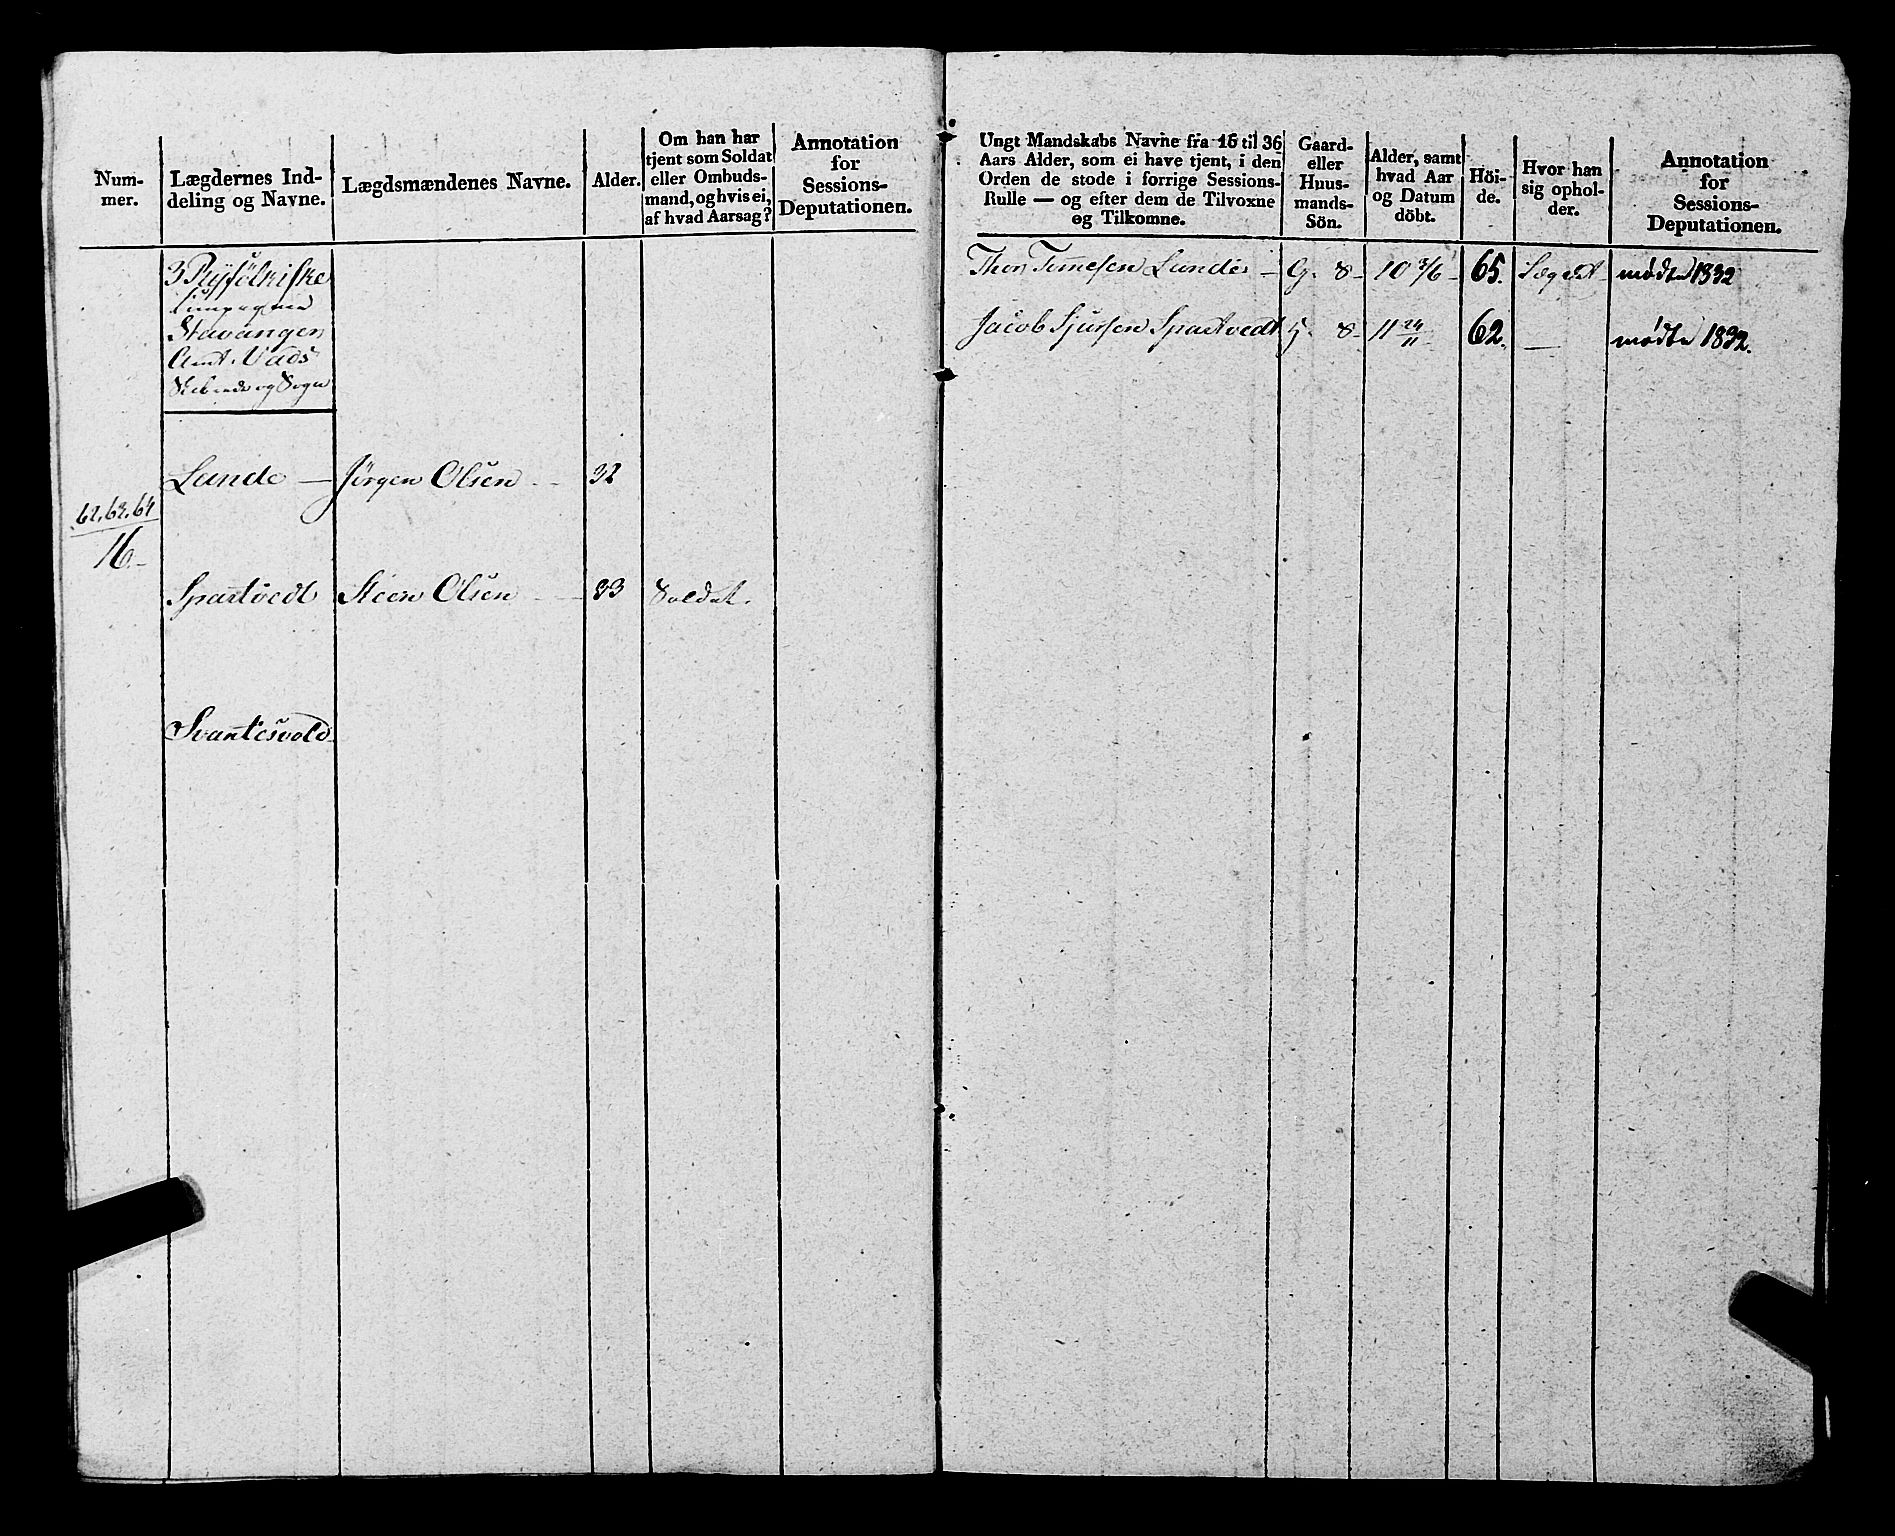 Num-
mer.
Lægdernes Ind-
deling og Navne.
Lægdsmændenes Navne.
Alder.
Om han har
tjent som Soldat
eller Ombuds-
mand, og hvis ei,
af hvad Aarsag?
Annotation
for
Sessions-
Deputationen.
3 Ryfölkiske
Compagnie
Stavanger
Amt. Vads
Lunde — Jørgen Olsen 32
62. 63. 64
16.
Spastvedt Steen Olsen 33 Soldat.
Svantesvold
Ungt Mandskabs Navne fra 16 til 36
Aars Alder, som ei have tjent, i den
Orden de stode i forrige Sessions-
Rulle — og efter dem de Tilvoxne
og Tilkomne.
Gaard-
eller
Huus-
mands-
Sön.
Alder, samt
hvad Aar
og Datum
döbt.
Höi-
de.
Hvor han
sig ophol-
der.
Annotation
for
Sessions-
Deputationen.
Thor Lunde — G. 8 — 10 3/6 — 65. Lægdet mødte 1832
Jacob Sjursen Spastvedt G. 8 — 11 24/11 62. — mødte 1832.